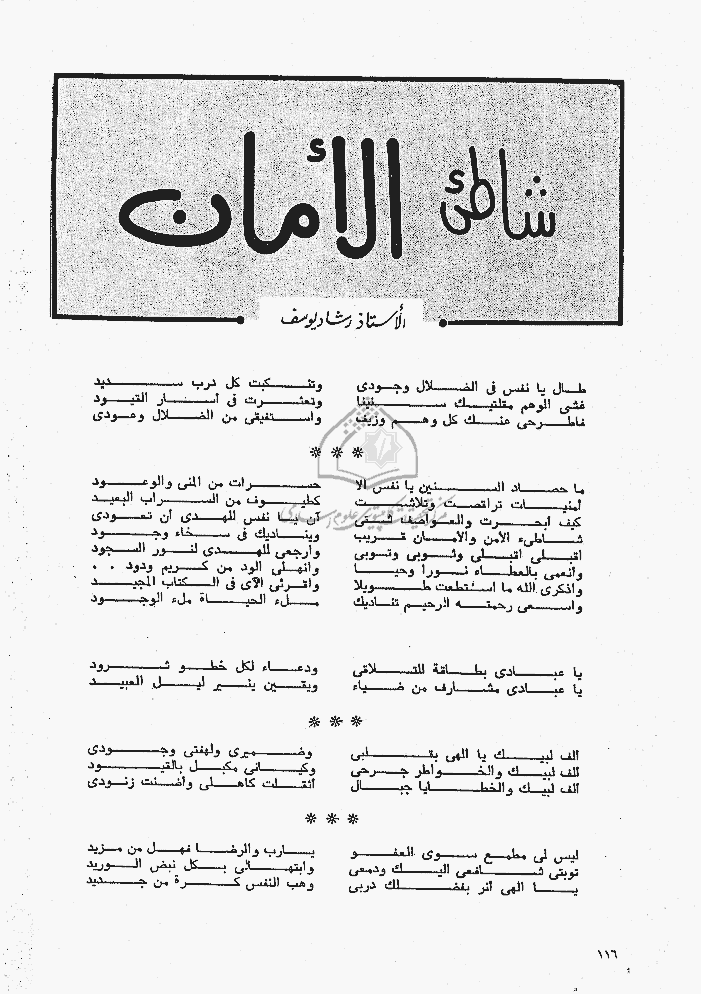 شاطئ الأمان
الأستاذ رشاد يوسف
طال يا نفس فى الضلال وجودى وتنكبت كل درب سديد
غشى الوهم مقلتيك سنينا وتعثرت فى أسار القيود
فاطرحى عنك كل وهم وزيف واستفيقى من الضلال وعودى
***
ما حصاد السنين يا نفس الا حسرات من المنى والوعود
أمنيات تراقصت وتلاشت كطيوف من السراب البعيد
كيف ابحرت والعواصف شتى آن يا نفس للهدى أن تعودى
شاطىء الأمن والأمان قريب ويناديك فى سخاء وجود
اقبلى اقبلى وثوبى وتوبى وارجعى للهدى لنور السجود
وانعمى بالعطاء نورا وحبا وانهلى الود من كريم ودود . .
واذكرى الله ما استطعت طويلا واقرئى الآى فى الكتاب المجيد
واسعى رحمته الرحيم تناديك ملء الحياة ملء الوجود
يا عبادى بطاقة للتلاقى ودعاء لكل خطو شرود
يا عبادى مشارف من ضياء ويقين ينير ليل العبيد
***
ألف لبيك يا الهى بقلبى وضميرى ولهفتى وجودى
ألف لبيك والخواطر جرحى وكيانى مكبل بالقيود
ألف لبيك والخطايا جبال أثقلت كاهلى وأضنت زنودى
***
ليس لى مطمع سوى العفو يارب والرضا فهل من مزيد
توبتى شافعى اليك ودمعى وابتهالى بكل نبض الوريد
يا الهى أنر بفضلك دربى وهب النفس كرة من جديد
١١٦